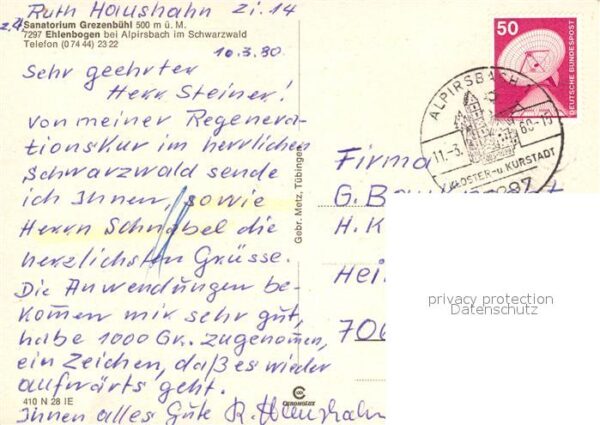 Ruth Haushahn Zi. 14
z.Zt.
Sanatorium Grezenbühl 500 m ü. M.
7297 Ehlenbogen bei Alpirsbach im Schwarzwald
Telefon (0 74 44) 23 22
10.3.80.
Sehr geehrter
Herr Steiner!
Von meiner Regener-
ationskur im herrlichen
Schwarzwald sende
ich Ihnen, sowie
Herrn Schnabel die
herzlichsten Grüsse.
Die Anwendungen be-
kommen mir sehr gut,
habe 1000 Gr. zugenommen,
ein Zeichen, daß es wieder
aufwärts geht.
Ihnen alles Gute R. Haushahn
410 N 28 IE
CHROMOLUX
Gebr. Metz, Tübingen
50
DEUTSCHE BUNDESPOST
ALPIRSBACH
11.-3. 80-15
KLOSTER-u. KURSTADT
7297
Firma
G.
H. K
Hei
706
privacy protection
Datenschutz